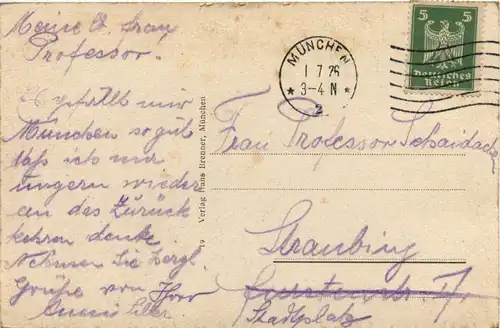 Meine l. Frau
Professor.
Es gefällt mir
München so gut
daß ich nur
ungern wieder
an das Zurück
kehren denke.
Nehmen Sie herzl.
Grüße von Ihrer
MÜNCHEN
1 7 26
* 3-4 N *
2
5 5
Deutsches
Reich
Frau Professor
Straubing
Stadtplatz
19 Verlag Hans Brenner, München